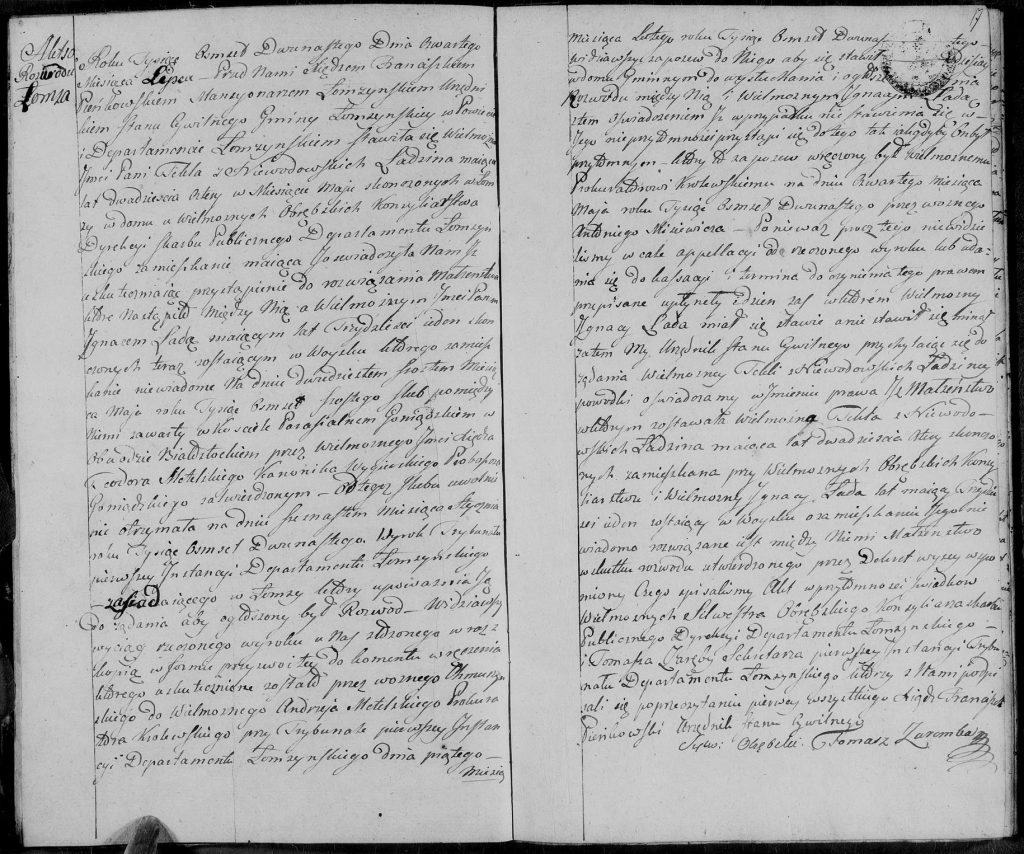 Aktso
Rozwodu
Łomza
Roku Tysiąc Osmset Dwunastego Dnia Czwartego
Miesiąca Lipca – Przed Nami Xiędzem Franciszkiem
Pieńkowskiem Mansyonarzem Łomzynskiem Urzędni
kiem Stanu Cywilnego Gminy Łomzynskiey w Powiecie
i Departamencie Łomzynskiem stawiła się Wielmożna
Jmci Pani Tekla z Niewodowskich Ładzina maiąca
lat dwadziescia cztery w Miesiącu Maju skonczonych w Łom
zy w domu u Wielmoznych Obrębskich Konsyliarstwa
Dyrekcyi Skarbu Publicznego Departamentu Łomzyn
skiego zamieszkanie maiąca i oswiadczyła Nam iż
uskuteczniaiąc przystąpienie do rozwiązania Małzenstwa
ktore Nastąpiło między Nią a Wielmoznym Jmci Panem
Ignacem Ładą maiącym lat Trzydziesci ieden skon
czonych teraz zostaiącym w Woysku ktorego zamiesz
kanie niewiadome Na dniu dwudziestem szostem Miesią
ca Maja roku Tysiąc Osmset szostego slub pomiędzy
Niemi zawarty w Kosciele Parafialnem Goniądzkiem w
Obwodzie Białostockiem przez Wielmoznego Jmci Xiędza
Teodora Motelskiego Kanonika Proboszcza
Goniądzkiego zaswierdzonym – Od tego slubu uwolnie
nie otrzymała na dniu szesnastem Miesiąca Stycznia
roku Tysiąc Osmset Dwunastego. Wyrok Trybunału
pierwszey Instancyi Departamentu Łomzynskiego
– zasiadaiącego w Łomzy ktory upowaznia Ją
Do ządania aby ogłoszony był Rozwod – Widziawszy
wyciąg rzeczonego wyroku u Nas złozonego w raz z
kopią w formie przyzwoitey do komentu wręczenia
ktorego uskutecznione zostało przez woznego Chmurzyn
skiego do Wielmoznego Andrzeja Motelskiego Prokura
tora Krolewskiego przy Trybunale pierwszey Instan
cyi Departamentu Łomzynskiego dnia piątego –
Miesią
17
miesiąca Lutego roku Tysiąc Osmset Dwunas tego
widziawszy zapozew do Niego aby się stawił dzisiay
w domu Gminnym do wysłuchania i ogłoszenia
Rozwodu między Nią i Wielmoznym Ignacym Ładą
ztem oswiadczeniem iz w przypadku nie stawienia się w
Jego nieprzytomnosci przystąpi się do tego tak iakgdyby On był
przytomnym – ktory to zapozew wręczony był Wielmoznemu
Prokuratorowi Krolewskiemu na dniu Czwartego Miesiąca
Maja roku Tysiąc Osmset Dwunastego przez woznego
Antoniego Misiewicza – Poniewaz przez tego niewidzie
lismy w cale appellacyi do rzeczonego wyroku lub uda-
nia się do kassacyi i termina do czynienia tego prawem
przepisane upłynęły i dzien zas w ktorem Wielmozny
Ignacy Łada miał się stawic a nie stawił się minął
zatem My Urzędnik Stanu Cywilnego przychylaiąc się do
ządania Wielmozney Tekli z Niewodowskich Ładziney
powodki oswiadczamy w Imieniu prawa Iz Małzenstwo
w ktorym zostawała Wielmozna Tekla z Niewodo-
wskich Ładzina maiąca lat dwadziescia cztery skonczo
nych zamieszkana przy Wielmoznych Obrębskich Konsy
liarstwu i Wielmozny Ignacy Łada lat maiący Trzydzie
sci ieden zostaiący w Woysku a zamieszkanie Jego nie
wiadomo rozwiązane iest między Niemi Małzenstwo
w skutku rozwodu utwierdzonego przez Dekret wyzey wspo
miony Czego spisalismy Akt w przytomnosci swiadkow
Wielmoznych Silwestra Obrębskiego Konsyliarza Skarbu
Publicznego Dyrekcyi Departamentu Łomzynskiego –
i Tomasza Zaręby Sekretarza pierwszey Instancyi Trybu
nału Departamentu Łomzynskiego ktorzy z Nami podpi
sali się poprzeczytaniu pierwey wszystkiego Xiądz Franciszek
Pieńkowski Urzędnik Stanu Cywilnego
Sylwe: Obrębski Tomasz Zaremba